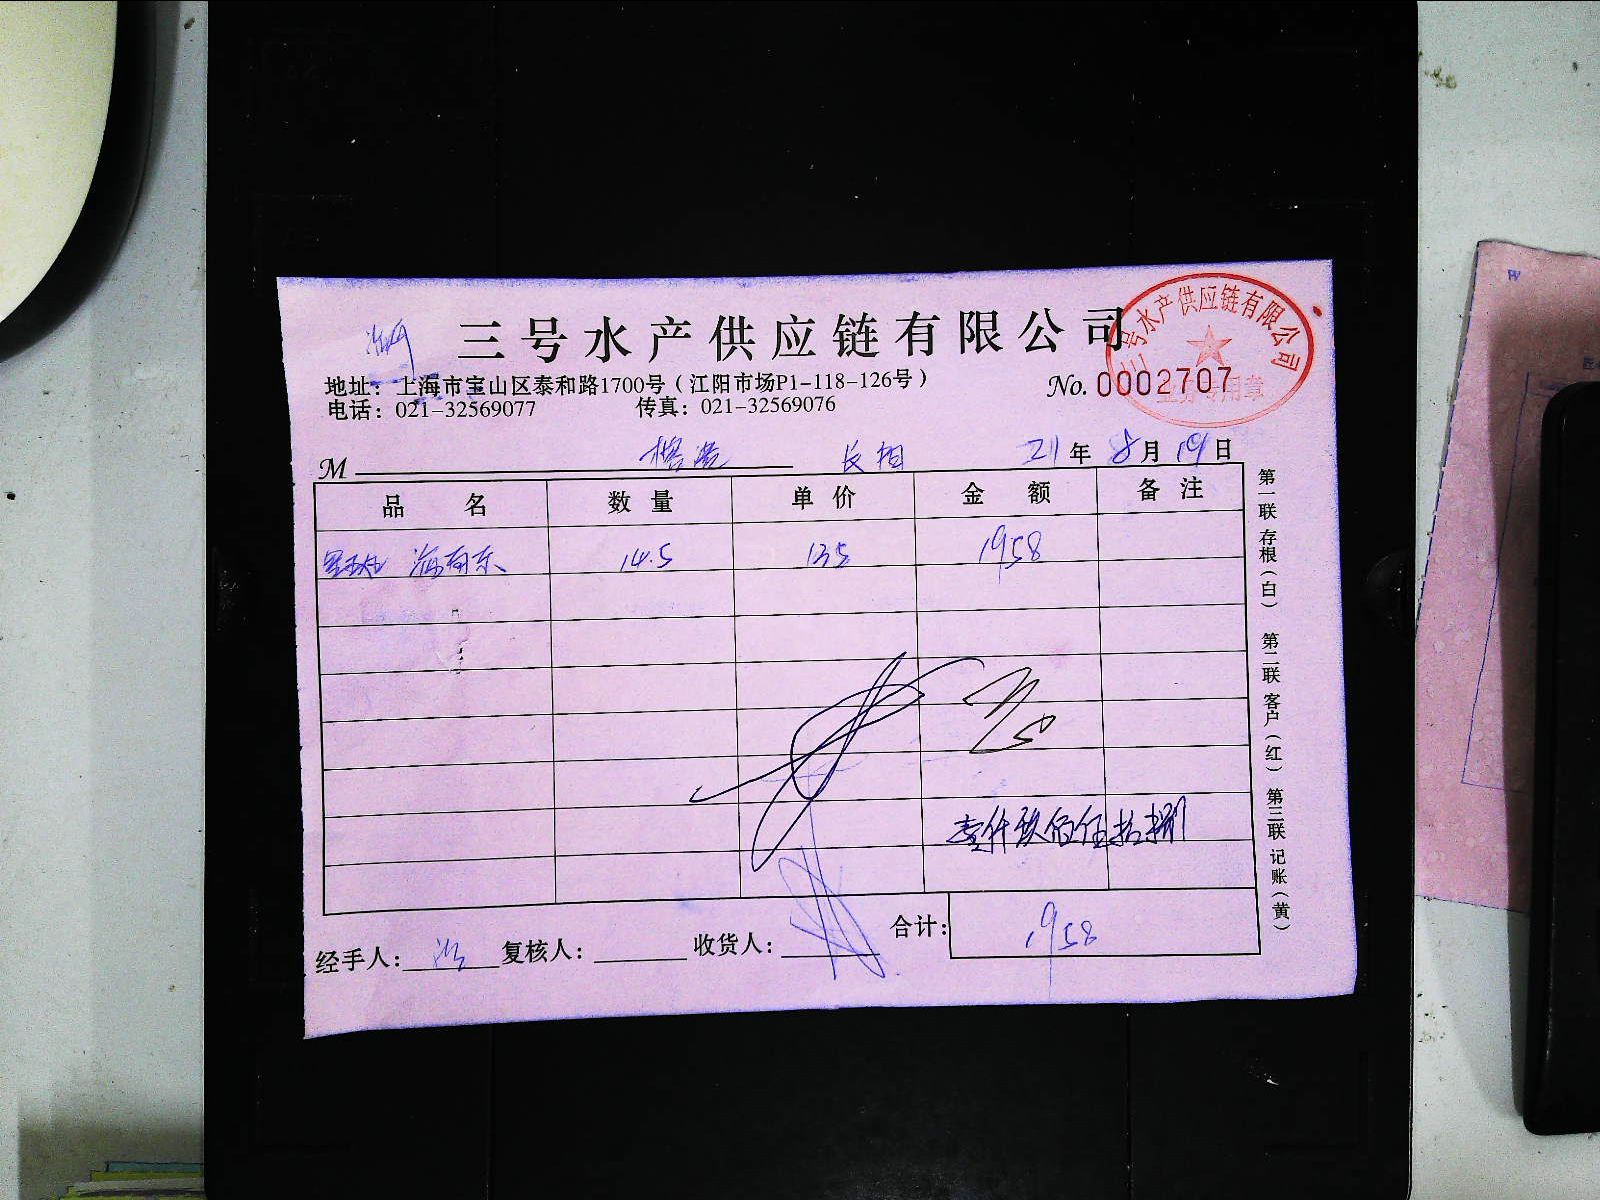 三号水产供应链有限公司
三号水产供应链有限公司
业务专用章
地址：上海市宝山区泰和路1700号（江阳市场P1-118-126号）
No. 0002707
电话：021-32569077 传真：021-32569076
M 21年8月19日
品名 数量 单价 金额 备注
海南东 14.5 135 1958
壹仟玖佰伍拾捌
合计：1958
经手人： 复核人： 收货人：
第一联存根（白） 第二联客户（红） 第三联记账（黄）